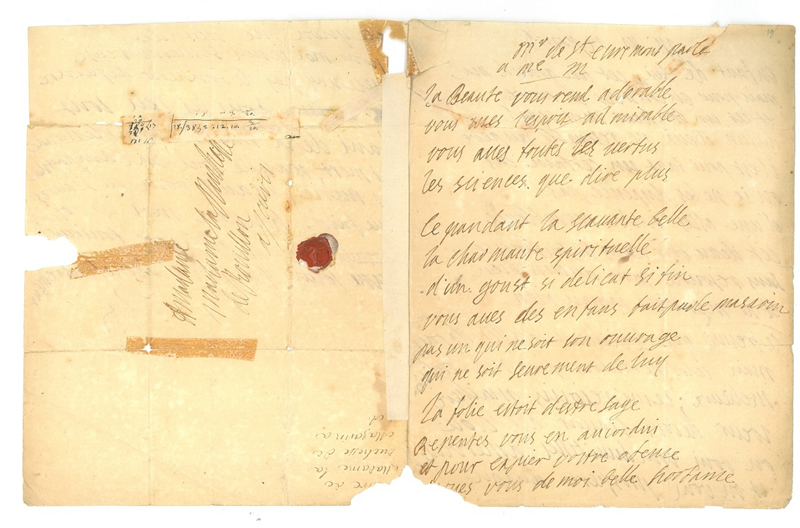 mr de st euremont parle
a me m
la Beaute vous rend adorable
vous aues l'esprit admirable
vous aues toutes les vertus
les sciences que dire plus
Ce pandant la scauante belle
la charmante spirituelle
d'un goust si delicat si fin
vous aues des enfans fait par le masarin
pas un qui ne soit son ouurage
qui ne soit seurement de luy
la folie estoit d'estre sage
Repentes vous en auiordui
et pour expier vostre ofence
vous de moi belle hortance
A Madame
Madame la
de Bouillon
a paris
de
Madame la
duchesse de
Mazarin